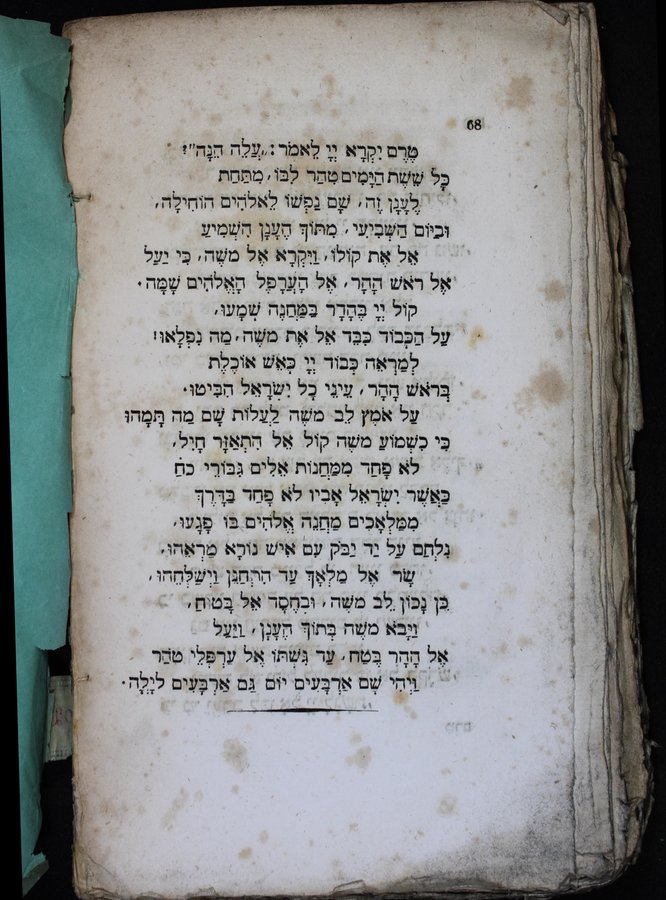 68
טֶרֶם יִקְרָא יְיָ לֵאמֹר: „עֲלֵה הֵנָּה״!
כָּל שֵׁשֶׁת הַיָּמִים טִהַר לִבּוֹ, מִתַּחַת
לֶעָנָן זֶה, שָׁם נַפְשׁוֹ לֵאלֹהִים הוֹחִילָה,
וּבַיּוֹם הַשְּׁבִיעִי, מִתּוֹךְ הֶעָנָן הִשְׁמִיעַ
אֵל אֶת קוֹלוֹ, וַיִּקְרָא אֶל משֶׁה, כִּי יַעַל
אֶל רֹאשׁ הָהָר, אֶל הָעֲרָפֶל הָאֱלֹהִים שָׁמָּה.
קוֹל יְיָ בֶּהָדָר בַּמַּחֲנֶה שָׁמְעוּ,
עַל הַכְּבוֹד כִּבֵּד אֵל אֶת משֶׁה, מַה נִפְלָאוּ!
לְמַרְאֵה כְּבוֹד יְיָ כְּאֵשׁ אוֹכֶלֶת
בְּרֹאשׁ הָהָר, עֵינֵי כָל יִשְׂרָאֵל הִבִּיטוּ.
עַל אֹמֶץ לֵב משֶׁה לַעֲלוֹת שָׁם מַה תָּמָהוּ
כִּי כִשְׁמוֹעַ משֶׁה קוֹל אֵל הִתְאַזֵּר חָיִל,
לֹא פָחַד מִמַּחֲנוֹת אֵלִים גִּבּוֹרֵי כֹחַ
כַּאֲשֶׁר יִשְׂרָאֵל אָבִיו לֹא פָחַד בַּדֶּרֶךְ
מִמַּלְאָכִים מַחֲנֵה אֱלֹהִים בּוֹ פָגָעוּ,
נִלְחַם עַל יַד יַבֹּק עִם אִישׁ נוֹרָא מַרְאֵהוּ,
שָׂר אֶל מַלְאָךְ עַד הִתְחַנֵּן וַיְשַׁלְּחֵהוּ,
כֵּן נָכוֹן לֵב משֶׁה, וּבְחֶסֶד אֵל בָּטוּחַ,
וַיָּבֹא משֶׁה בְּתוֹךְ הֶעָנָן, וַיַּעַל
אֶל הָהָר בֶּטַח, עַד גִּשְׁתּוֹ אֶל עַרְפְלֵי טֹהַר
וַיְהִי שָׁם אַרְבָּעִים יוֹם גַּם אַרְבָּעִים לָיְלָה.